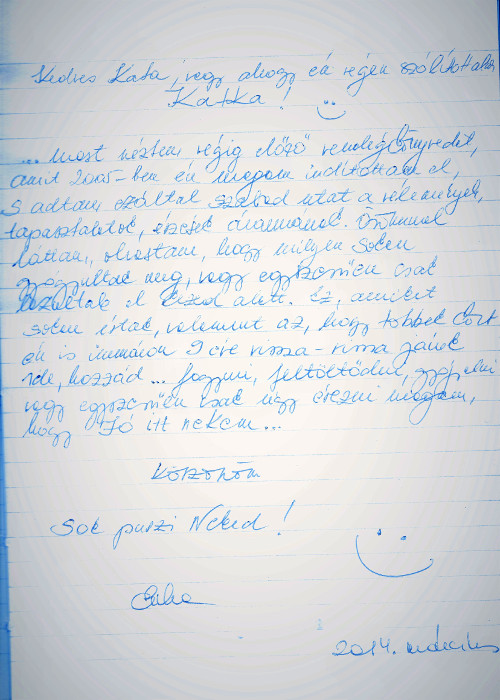 Kedves Kata, vagy ahogy én régen szólítottalak
Katka!
... most néztem végig előző vendégkönyvedet,
amit 2005-ben én magam indítottam el,
s adtam ezáltal szabad utat a vélemények,
tapasztalatok, érzések áramának. Örömmel
láttam, olvastam, hogy milyen sokan
gyógyultak meg, vagy egyszerűen csak
lazultak el kezed alatt. Ez, amiket
sokan írtak, valamint az, hogy többek közt
én is immáron 9 éve vissza-vissza járok
ide, hozzád ... fogyni, feltöltődni, gyógyulni
vagy egyszerűen csak úgy érezni magam,
hogy "Jó itt nekem...
Köszönöm
Sok puszi Neked!
2014. március